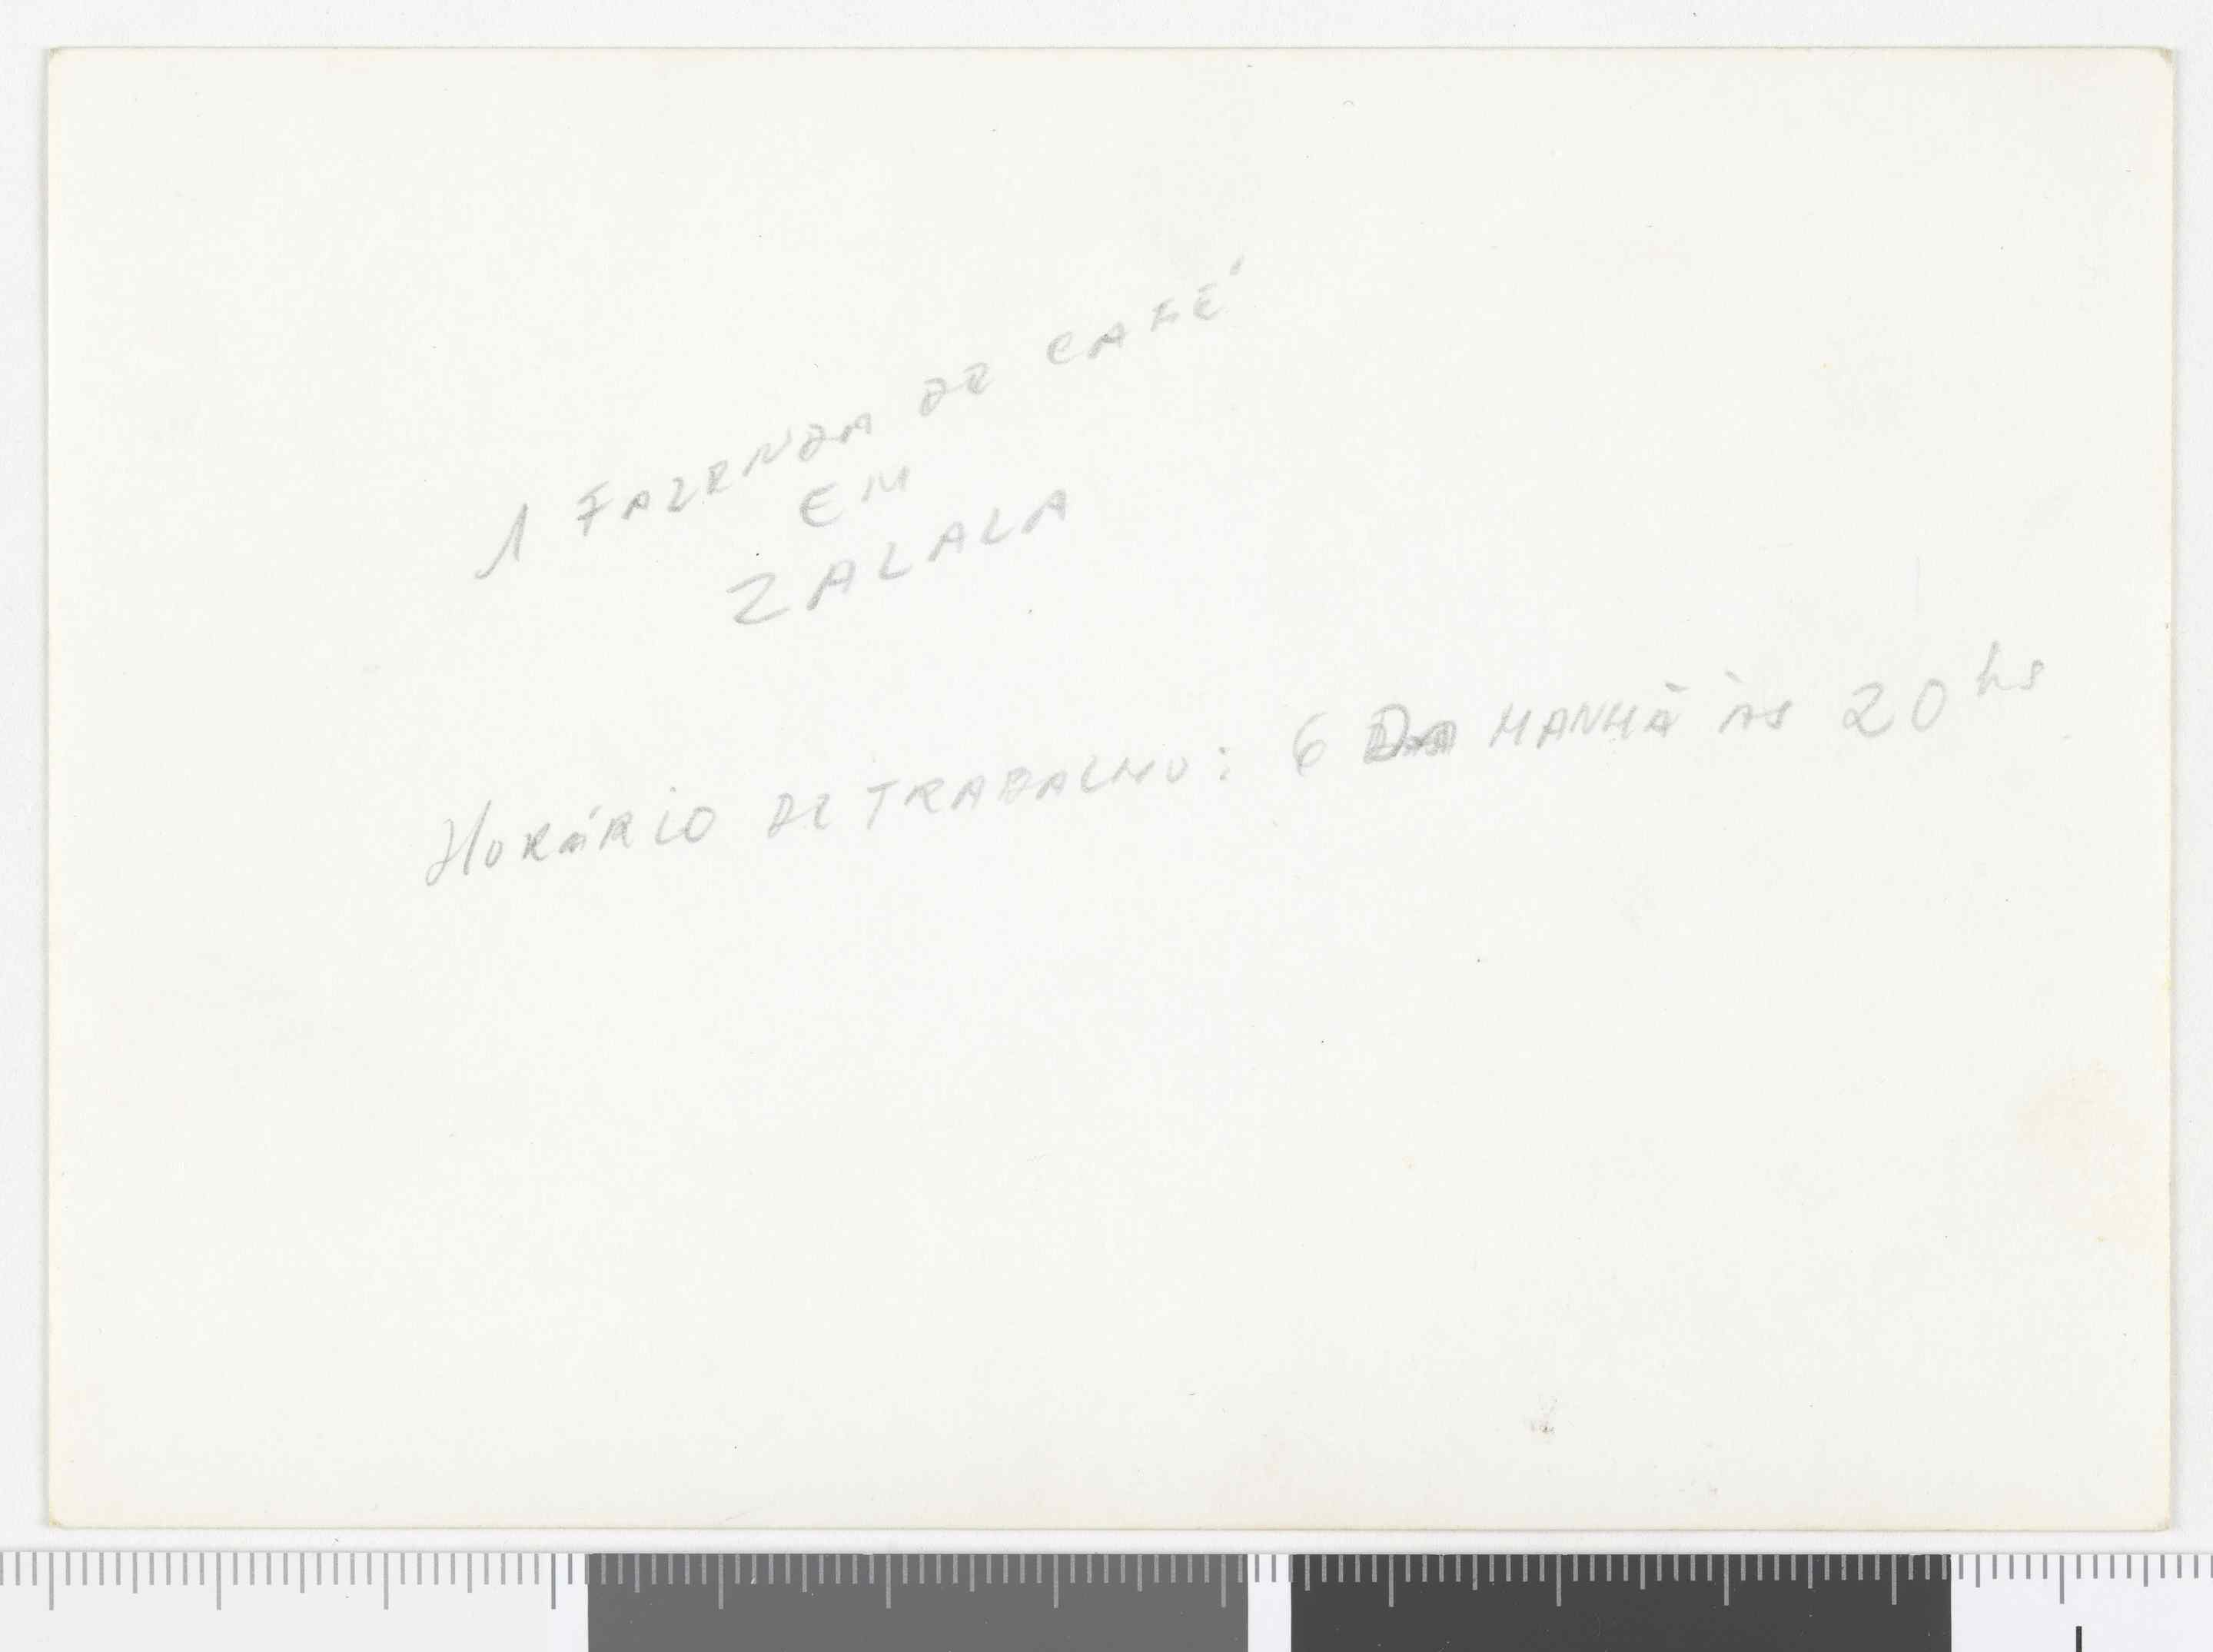 1 FAZENDA DE CAFÉ
EM
ZALALA
HORÁRIO DE TRABALHO: 6 DA MANHÃ ÀS 20 hs